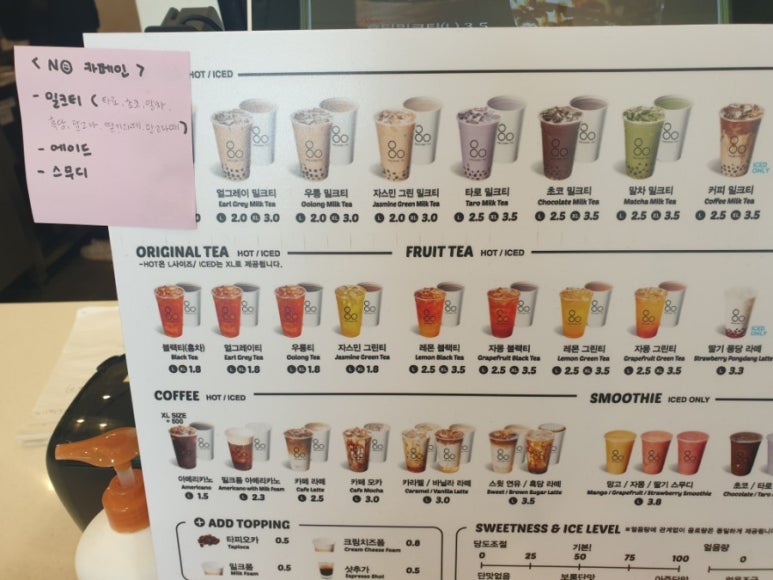 < NO 카페인 >
- 밀크티 ( 타로, 초코, 말차,
흑당, 달고나, 딸기라떼,
- 에이드
- 스무디
HOT / ICED
얼그레이 밀크티 우롱 밀크티 자스민 그린 밀크티 타로 밀크티 초코 밀크티 말차 밀크티 커피 밀크티
Earl Grey Milk Tea Oolong Milk Tea Jasmine Green Milk Tea Taro Milk Tea Chocolate Milk Tea Matcha Milk Tea Coffee Milk Tea
L 2.0 XL 3.0 L 2.0 XL 3.0 L 2.0 XL 3.0 L 2.5 XL 3.5 L 2.5 XL 3.5 L 2.5 XL 3.5 L 2.5 XL 3.5
ICED ONLY
ORIGINAL TEA HOT / ICED
~HOT은 L사이즈/ ICED는 XL로 제공됩니다.
FRUIT TEA HOT / ICED
블랙티(홍차) 얼그레이티 우롱티 자스민 그린티 레몬 블랙티 자몽 블랙티 레몬 그린티 자몽 그린티 딸기 퐁당 라떼
Black Tea Earl Grey Tea Oolong Tea Jasmine Green Tea Lemon Black Tea Grapefruit Black Tea Lemon Green Tea Grapefruit Green Tea Strawberry Pongdang Latte
L XL 1.8 L XL 1.8 L XL 1.8 L XL 1.8 L 2.5 XL 3.5 L 2.5 XL 3.5 L 2.5 XL 3.5 L 2.5 XL 3.5 L 3.3
ICED ONLY
COFFEE HOT / ICED
SMOOTHIE ICED ONLY
XL SIZE
+ 500
아메리카노 밀크폼 아메리카노 카페 라떼 카페 모카 카라멜 / 바닐라 라떼 스윗 연유 / 흑당 라떼 망고 / 자몽 / 딸기 스무디 초코 / 타로
Americano Americano with Milk Foam Cafe Latte Cafe Mocha Caramel / Vanilla Latte Sweet / Brown Sugar Latte Mango / Grapefruit / Strawberry Smoothie Chocolate / Taro
L 1.5 L 2.3 L 2.5 L 3.0 L 3.0 L 3.5 L 3.8
+ ADD TOPPING
타피오카 0.5 크림치즈폼 0.8
Tapioca Cream Cheese Foam
밀크폼 0.5 샷추가 0.5
Milk Foam Espresso Shot
SWEETNESS & ICE LEVEL ※얼음량에 관계없이 음료량은 동일하게 제공됩니다.
당도조절 기본! 얼음량
0 25 50 75 100 0
단맛없음 보통단맛